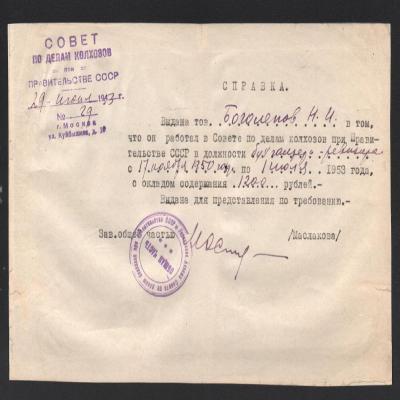 СОВЕТ
ПО ДЕЛАМ КОЛХОЗОВ
ПРИ
ПРАВИТЕЛЬСТВЕ СССР
29 июня 1953 г.
№ 29
г. Москва
ул. Куйбышева, д.
СПРАВКА.
Выдана тов. Богалепов, Н. И. в том,
что он работал в Совете по делам колхозов при Прави-
тельстве СССР в должности бухгалтера-ревизора
с 17 ноября 1950 года по 1 июля 1953 года,
с окладом содержания 1200 рублей.-
Выдана для представления по требованию.-
Зав.общей частью /Маслакова/
ОБЩАЯ ЧАСТЬ